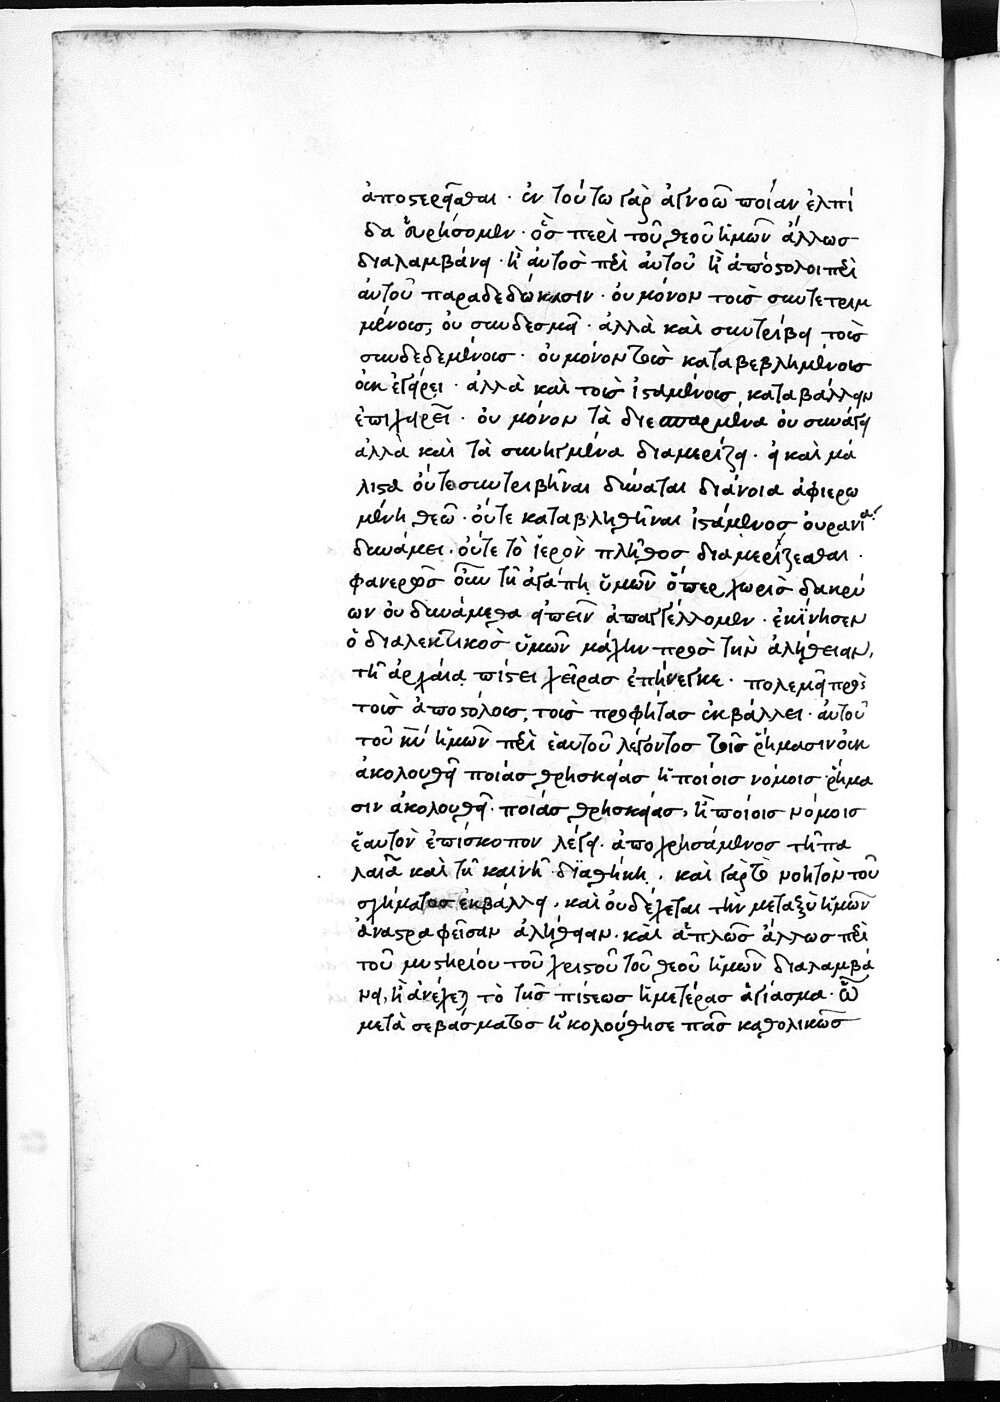 ἀποστερεῖσθαι · ἐν τούτω γὰρ ἀγνοῶ ποίαν ἐλπί
δα εὑρήσομεν · ὃσ περὶ τοῦ θεοῦ ἡμῶν ἄλλωσ
διαλαμβάνει · ἢ ἀυτοσ περὶ ἀυτοῦ ἢ ἀπόστολοι περὶ
ἀυτοῦ παραδεδώκασιν · ὀυ μόνον τοισ συντετριμ
μένοισ, ὀυ συνδεσμεῖ · ἀλλὰ καὶ συντρίβει τοισ
συνδεδεμένοισ · ὀυ μόνον τοισ καταβεβλημένοισ
ὀυκ ἐγείρει · ἀλλὰ καὶ τοισ ἱσταμένοισ καταβάλλειν
ἐπιχειρεῖ · ὀυ μόνον τὰ διεσπαρμένα ὀυ συνάγει
ἀλλὰ καὶ τὰ συνηγμένα διαμερίζει · εἰ καὶ μά
λιστα ὀύτε συντριβῆναι δύναται διάνοια ἀφιερω
μένη θεῶ · ὀύτε καταβληθῆναι ἱστάμενοσ ὀυρανία
δυνάμει · ὀύτε τὸ ἱερὸν πλῆθοσ διαμερίζεσθαι ·
φανερῶσ οὖν τῆ ἀγάπη ὑμῶν ὅπερ χωρὶσ δακρύ
ων ὀυ δυνάμεθα ειπεῖν ἀπαγγέλλομεν · ἐκίνησεν
ὁ διαλεκτικοσ ὑμῶν μάχην πρὸσ τὴν ἀλήθειαν,
τῆ ἀρχαία πίστει χεῖρασ ἐπήνεγκε · πολεμεῖ πρὸσ
τοισ ἀποστόλοισ, τοισ προφήτασ ἐκβάλλει · ἀυτοῦ
τοῦ κυ ἡμῶν περὶ ἑαυτοῦ λέγοντοσ τοῖσ ῥήμασιν ὀυκ
ἀκολουθεῖ ποίασ θρησκείασ ἢ ποίοισ νόμοισ ῥήμα
σιν ἀκολουθεῖ · ποίασ θρησκείασ, ἢ ποίοισ νόμοισ
ἑαυτὸν ἐπίσκοπον λέγει · ἀποχρησάμενοσ τῆ πα
λαιᾶ καὶ τῆ καινῆ διαθήκη · καὶ γὰρ τὸ νοητὸν τοῦ
σχήματοσ ἐκβάλλει · καὶ ὀυ δέχεται τὴν μεταξὺ ἡμῶν
ἀναστραφεῖσαν ἀλήθειαν · καὶ ἁπλῶσ ἄλλωσ περὶ
τοῦ μυστηρίου τοῦ χριστοῦ τοῦ θεοῦ ἡμῶν διαλαμβά
νει, ἢ ἀνέχεται τὸ τῆσ πίστεωσ ἡμετέρασ ἁγίασμα · ὧ
μετὰ σεβάσματοσ ἠκολούθησε πᾶσ καθολικῶσ